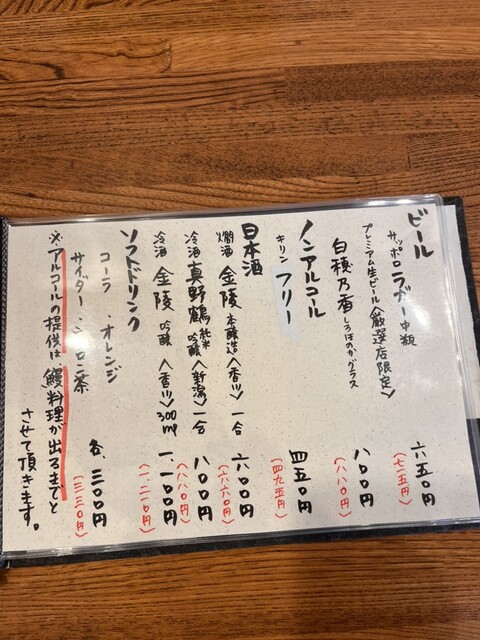 ビール
サッポロ ラガー 中瓶 六五〇円
(七一五円)
プレミアム生ビール〈厳選店限定〉
白穂乃香 しろほのか グラス 八〇〇円
(八八〇円)
ノンアルコール
キリン フリー 四五〇円
(四九五円)
日本酒
燗酒 金陵 本醸造〈香川〉 一合 六〇〇円
(六六〇円)
冷酒 真野鶴 純米吟醸〈新潟〉 一合 八〇〇円
(八八〇円)
冷酒 金陵 吟醸〈香川〉 300ml 一、一〇〇円
(一、二一〇円)
ソフトドリンク
コーラ ・オレンジ
サイダー ・ウーロン茶 各、三〇〇円
(三三〇円)
※アルコールの提供は〈鰻料理が出るまでと
させて頂きます。